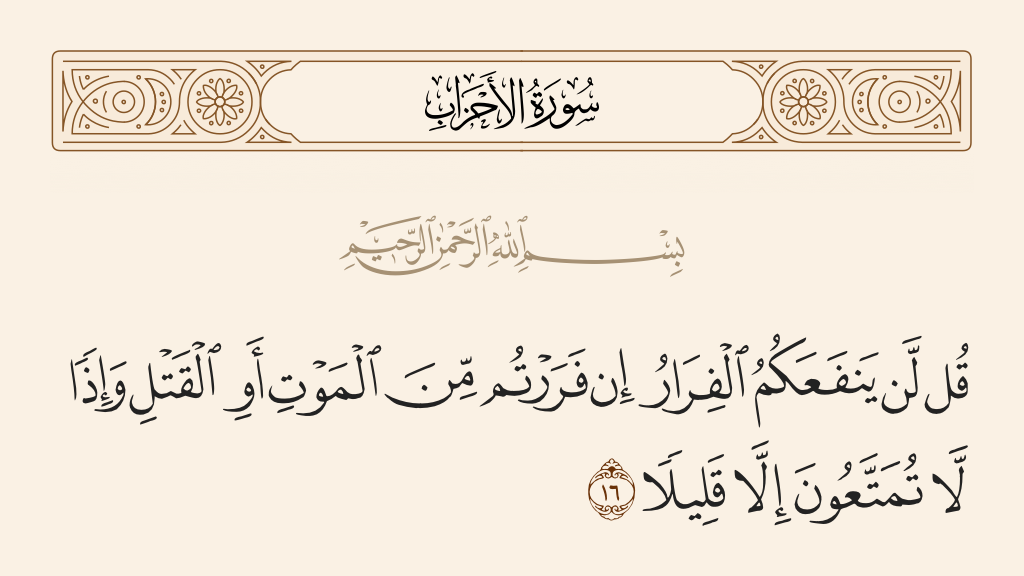 سُورَةُ الأَحْزَابِ
بِسْمِ ٱللَّهِ ٱلرَّحْمَٰنِ ٱلرَّحِيمِ
قُل لَّن يَنفَعَكُمُ ٱلْفِرَارُ إِن فَرَرْتُم مِّنَ ٱلْمَوْتِ أَوِ ٱلْقَتْلِ وَإِذًا
لَّا تُمَتَّعُونَ إِلَّا قَلِيلًا ١٦